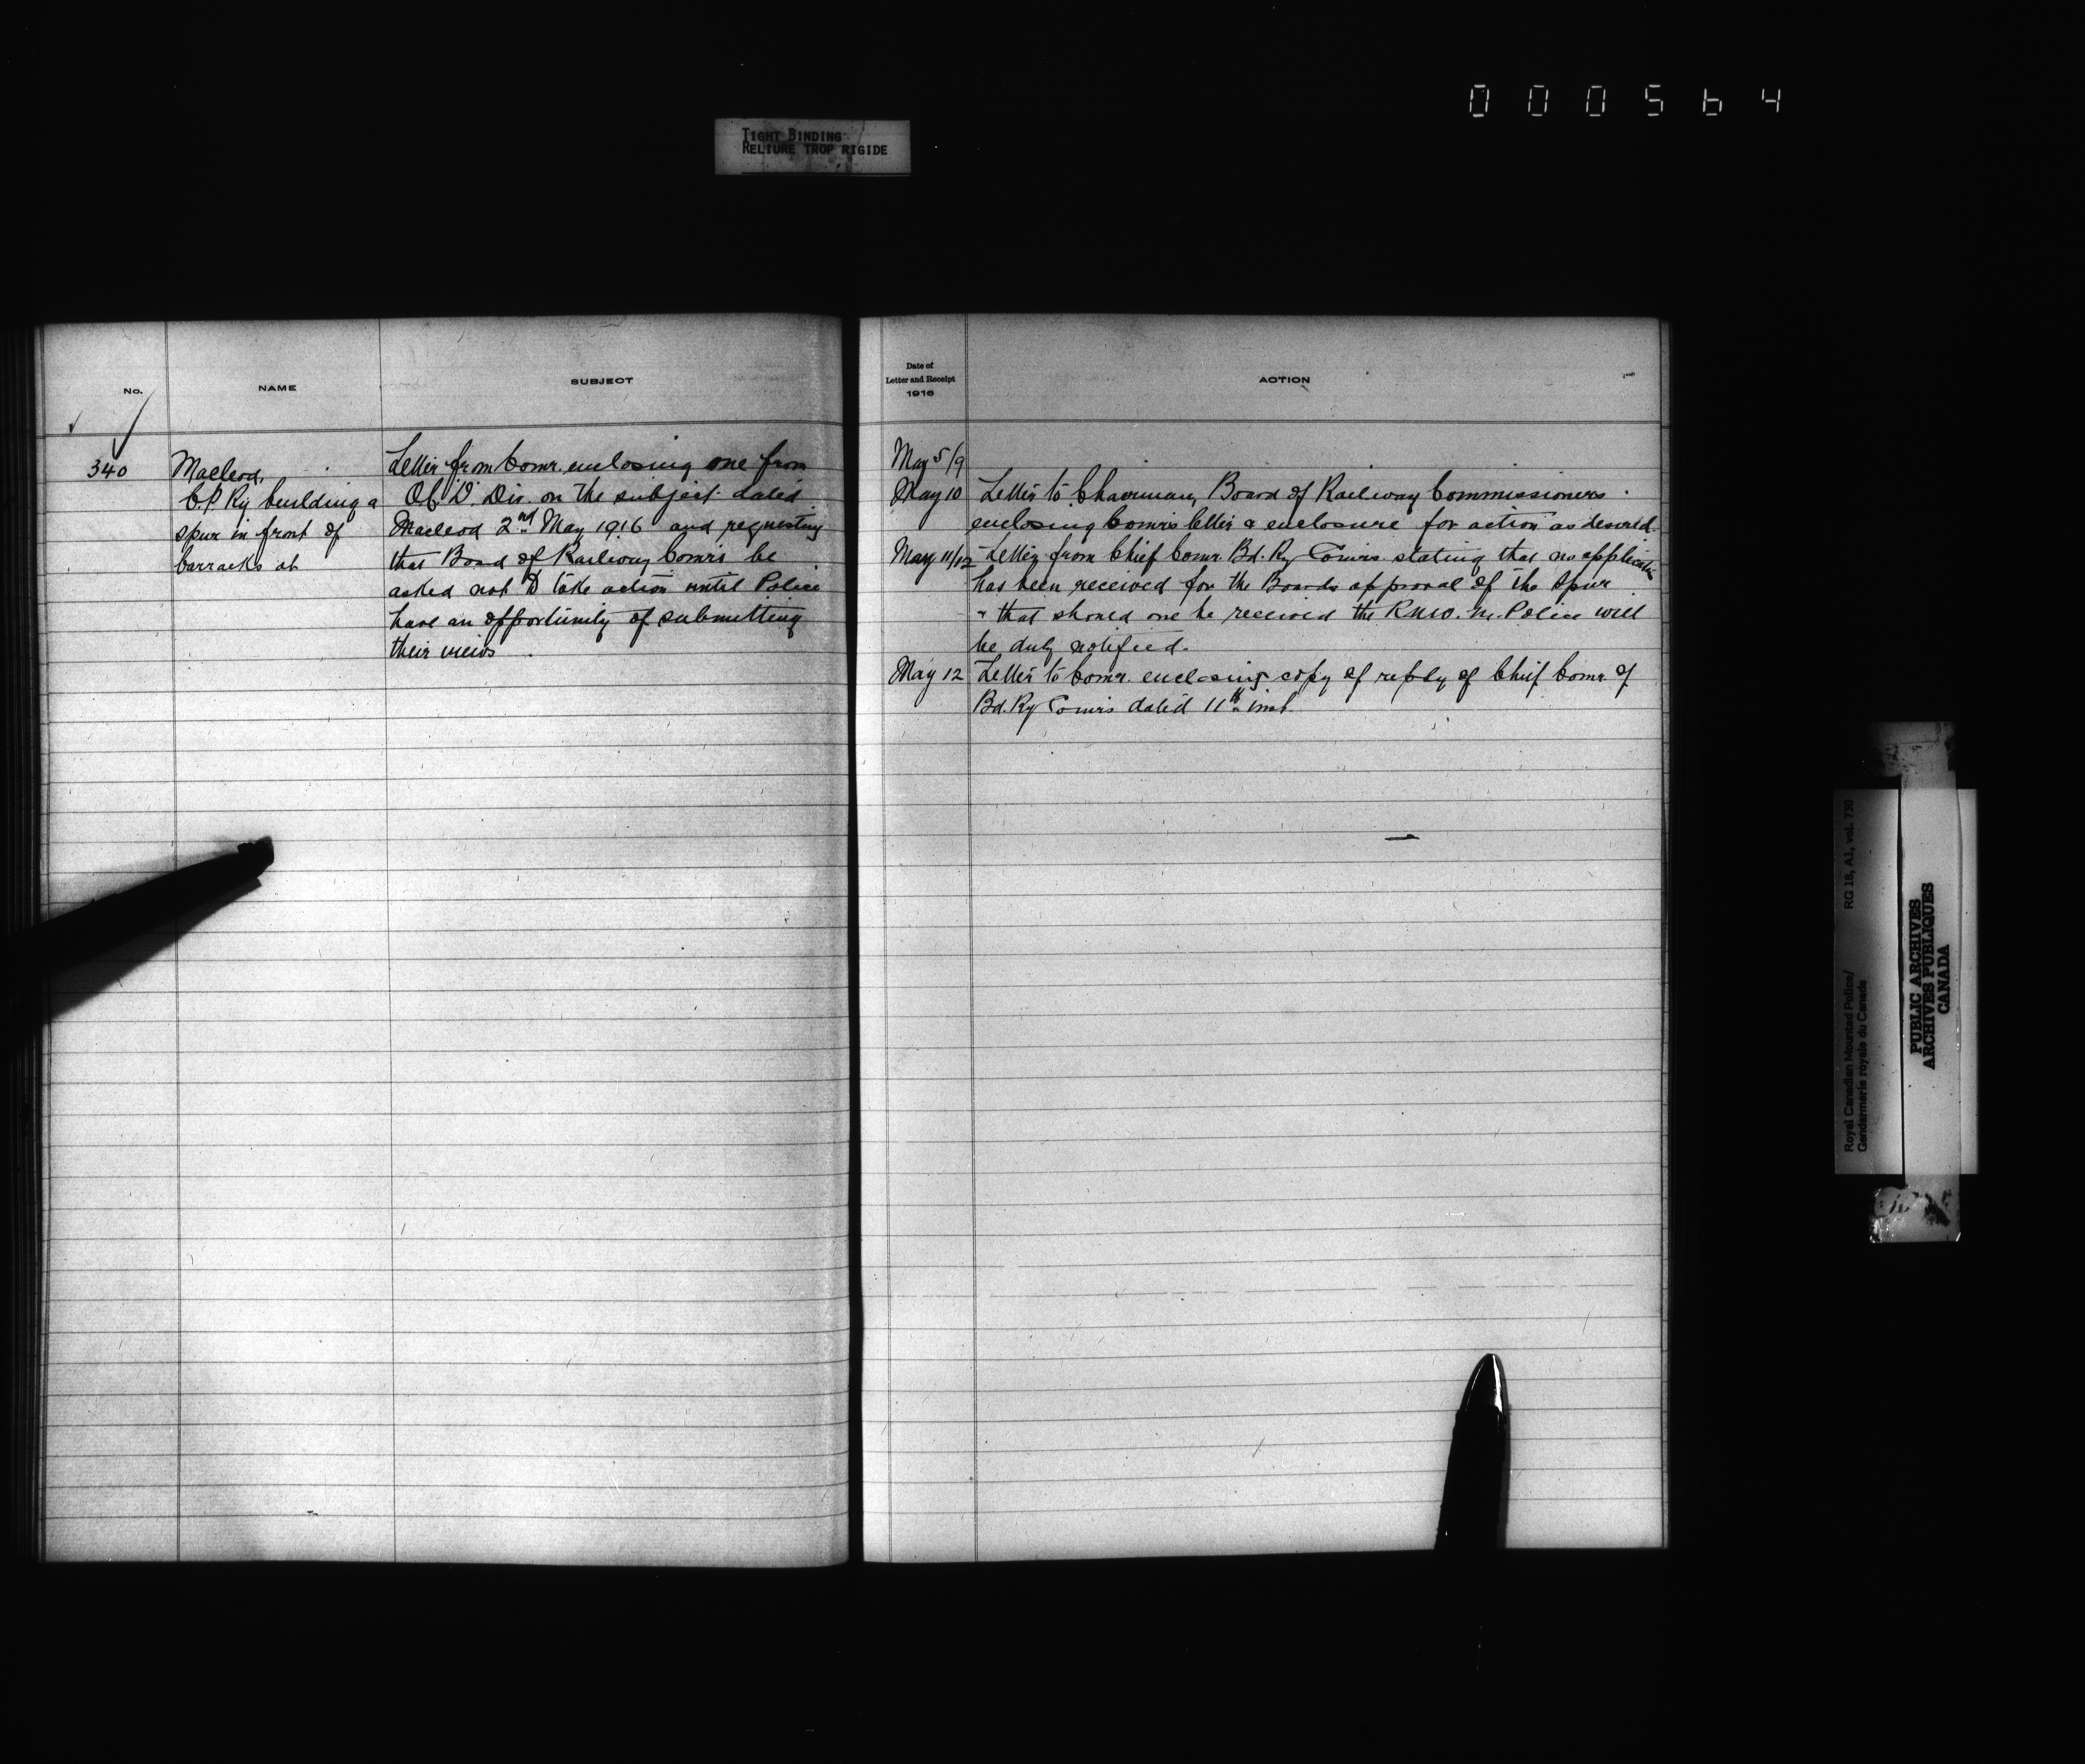 000564
TIGHT BINDING
RELIURE TROP RIGIDE
No.
NAME
SUBJECT
340
Macleod,
C.P. Ry building a
spur in front of
barracks at
Letter from Comr. enclosing one from
O.C. "D" Div. on the subject dated
Macleod 2nd May 1916 and requesting
that Board of Railway Comrs be
asked not to take action until Police
have an opportunity of submitting
their views.
Date of
Letter and Receipt
1916
ACTION
May 5/9
May 10 Letter to Chairman, Board of Railway Commissioners
enclosing Comrs letter & enclosure for action as desired.
May 11/12 Letter from Chief Comr. Bd. Ry Comrs stating that no application
has been received for the Boards approval of the spur
& that should one be received the R.N.W.M. Police will
be duly notified.
May 12 Letter to Comr. enclosing copy of reply of Chief Comr. of
Bd. Ry Comrs dated 11th inst.
Royal Canadian Mounted Police/
Gendarmerie royale du Canada
RG 18, A1, vol. 730
PUBLIC ARCHIVES
ARCHIVES PUBLIQUES
CANADA